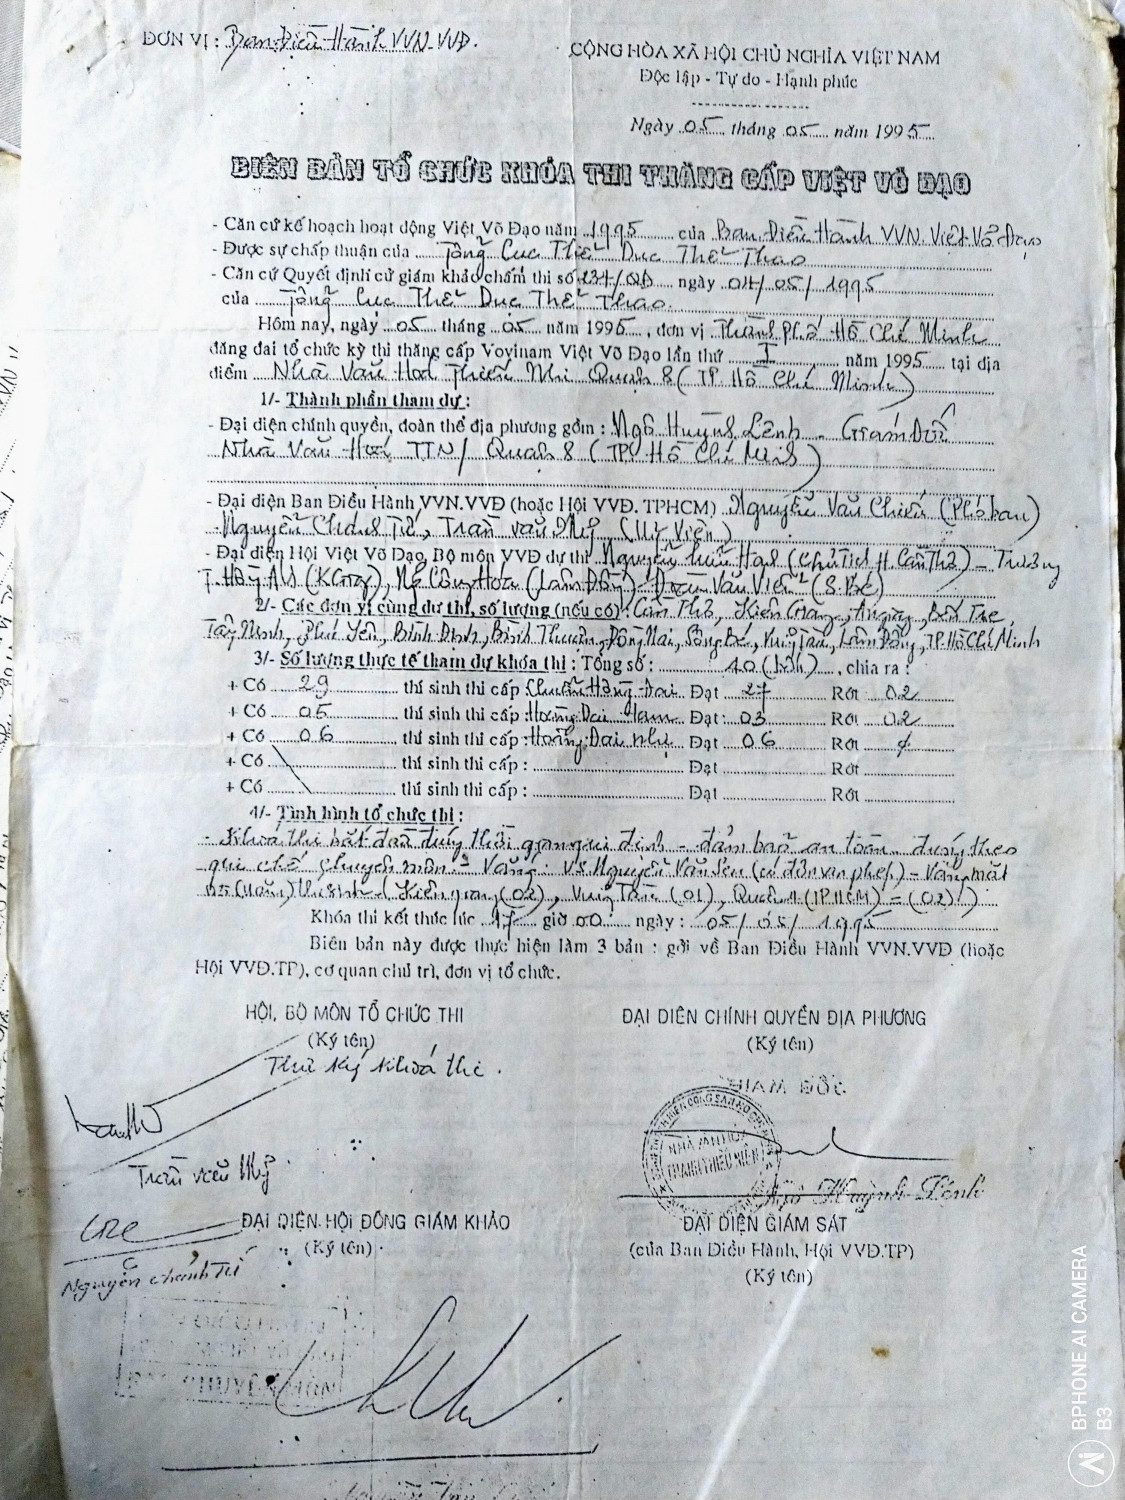 ĐƠN VỊ : Ban Điều Hành VVN.VVĐ.
CỘNG HÒA XÃ HỘI CHỦ NGHĨA VIỆT NAM
Độc lập - Tự do - Hạnh phúc
Ngày 05 tháng 05 năm 1995
BIÊN BẢN TỔ CHỨC KHÓA THI THĂNG CẤP VIỆT VÕ ĐẠO
- Căn cứ kế hoạch hoạt động Việt Võ Đạo năm 1995 của Ban Điều Hành VVN. Việt Võ Đạo
- Được sự chấp thuận của Tổng Cục Thể Dục Thể Thao
- Căn cứ Quyết định cử giám khảo chấm thi số ngày 04/05/1995
của Tổng Cục Thể Dục Thể Thao.
Hôm nay, ngày 05 tháng 05 năm 1995, đơn vị Thành Phố Hồ Chí Minh
đăng đai tổ chức kỳ thi thăng cấp Vovinam Việt Võ Đạo lần thứ I năm 1995 tại địa
điểm Nhà Văn Hoá Thiếu Nhi Quận 8 (TP. Hồ Chí Minh)
1/- Thành phần tham dự :
- Đại diện chính quyền, đoàn thể địa phương gồm : Ngô Huỳnh Lênh - Giám Đốc
Nhà Văn Hoá TTN/ Quận 8 (TP. Hồ Chí Minh)
- Đại diện Ban Điều Hành VVN.VVĐ (hoặc Hội VVĐ. TPHCM) Nguyễn Văn Chiếu (Phó ban)
Nguyễn Chánh Tứ, Trần Văn Mỹ (Uỷ Viên)
- Đại diện Hội Việt Võ Đạo, Bộ môn VVĐ dự thi (Chủ Tịch H. Cần Thơ) - Trương
(Lâm Đồng) - Đoàn Văn (S. Bé)
2/- Các đơn vị cùng dự thi, số lượng (nếu có) : Cần Thơ, Kiên Giang, An giang, Bến Tre,
Tây Ninh, Phú Yên, Bình Định, Bình Thuận, Đồng Nai, Sông Bé, Vũng Tàu, Lâm Đồng, TP. Hồ Chí Minh
3/- Số lượng thực tế tham dự khóa thi : Tổng số : 40 , chia ra :
+ Có 29 thí sinh thi cấp Chuẩn Hoàng Đai Đạt 27 Rớt 02
+ Có 05 thí sinh thi cấp : Hoàng Đai Đạt : 03 Rớt 02
+ Có 06 thí sinh thi cấp : Hoàng Đai nhị Đạt 06 Rớt
+ Có thí sinh thi cấp : Đạt Rớt
+ Có thí sinh thi cấp : Đạt Rớt
4/- Tình hình tổ chức thi :
- Khoá thi bắt đầu đúng thời gian qui định - đảm bảo an toàn - đúng theo
qui chế chuyên môn - Vắng : VS. Nguyễn Văn Sen (có đơn phép) - Vắng mặt
05 thí sinh (Kiên giang (02), Vũng Tàu (01), Quận (TPHCM) = (02))
Khóa thi kết thúc lúc 17 giờ 00 ngày : 05/05/1995
Biên bản này được thực hiện làm 3 bản : gởi về Ban Điều Hành VVN.VVĐ (hoặc
Hội VVĐ.TP), cơ quan chủ trì, đơn vị tổ chức.
HỘI, BỘ MÔN TỔ CHỨC THI
(Ký tên)
Thư ký khoá thi.
Trần Văn Mỹ
ĐẠI DIỆN CHÍNH QUYỀN ĐỊA PHƯƠNG
(Ký tên)
GIÁM ĐỐC
NHÀ VĂN HOÁ
THANH THIẾU NIÊN
Ngô Huỳnh Lênh
ĐẠI DIỆN HỘI ĐỒNG GIÁM KHẢO
(Ký tên)
Nguyễn Chánh Tứ
ĐẠI DIỆN GIÁM SÁT
(của Ban Điều Hành, Hội VVĐ.TP)
(Ký tên)
BPHONE AI CAMERA
B3